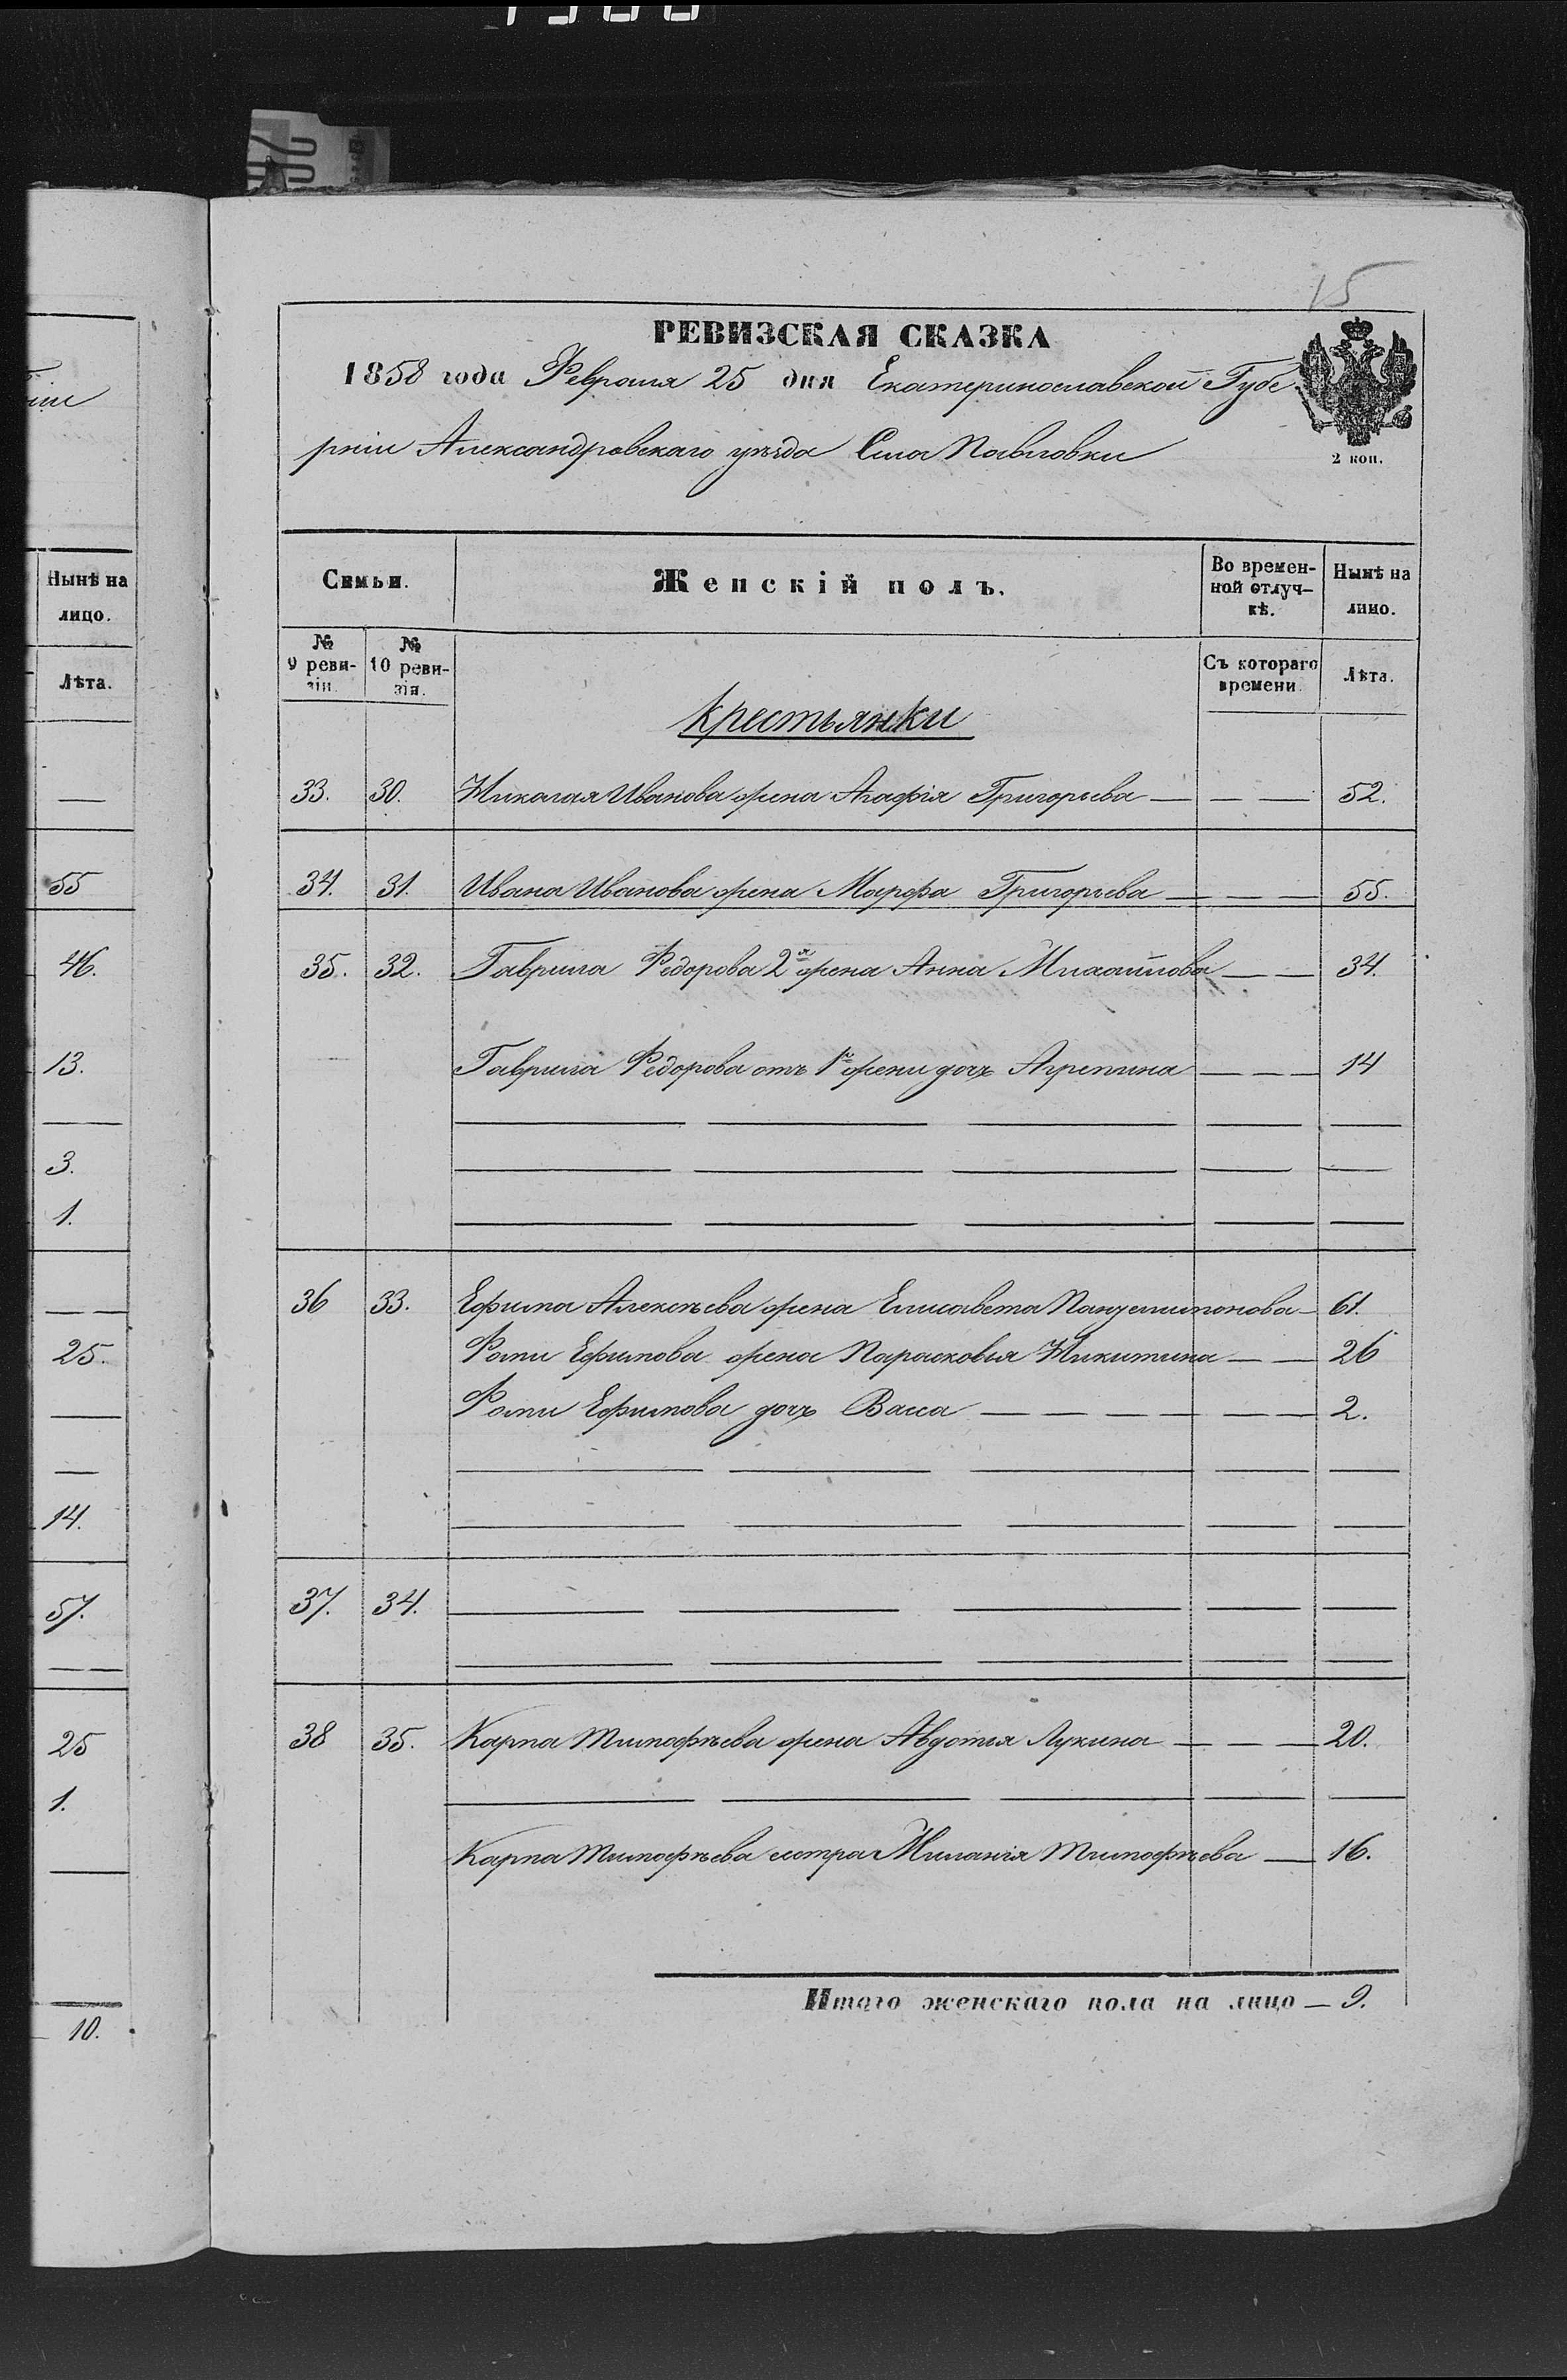 15
РЕВИЗСКАЯ СКАЗКА
1858 года Февраля 25 дня Екатеринославской Губе
рніи Александровскаго уѣзда Села Павловки
2 коп.
Нынѣ на
лицо.
Лѣта.
55
46.
13.
3.
1.
25.
14.
57.
25
1.
10.
Семьи. Женскій полъ. Во времен-
ной отлуч-
кѣ. Нынѣ на
лицо.
№
9 реви-
зіи. №
10 реви-
зія. Съ котораго
времени Лѣта.
Крестьянки
33. 30. Николая Иванова жена Агафія Григорьева — — — 52.
34. 31. Ивана Иванова жена Марфа Григорьева — — — 55.
35. 32. Гаврила Федорова 2я жена Анна Михайлова — — 34.
Гаврила Федорова отъ 1й жени дочь Агрепина — — — 14
36 33. Ефима Алексѣева жена Елисавета Пантелимонова — 61.
Фоми Ефимова жена Парасковья Никитина — — 26
Фоми Ефимова дочь Васса — — — — — — 2.
37. 34.
38 35. Карпа Тимофѣева жена Авдотья Лукина — — — 20.
Карпа Тимофѣева сестра Миланія Тимофѣева — 16.
Итого женскаго пола на лицо — 9.